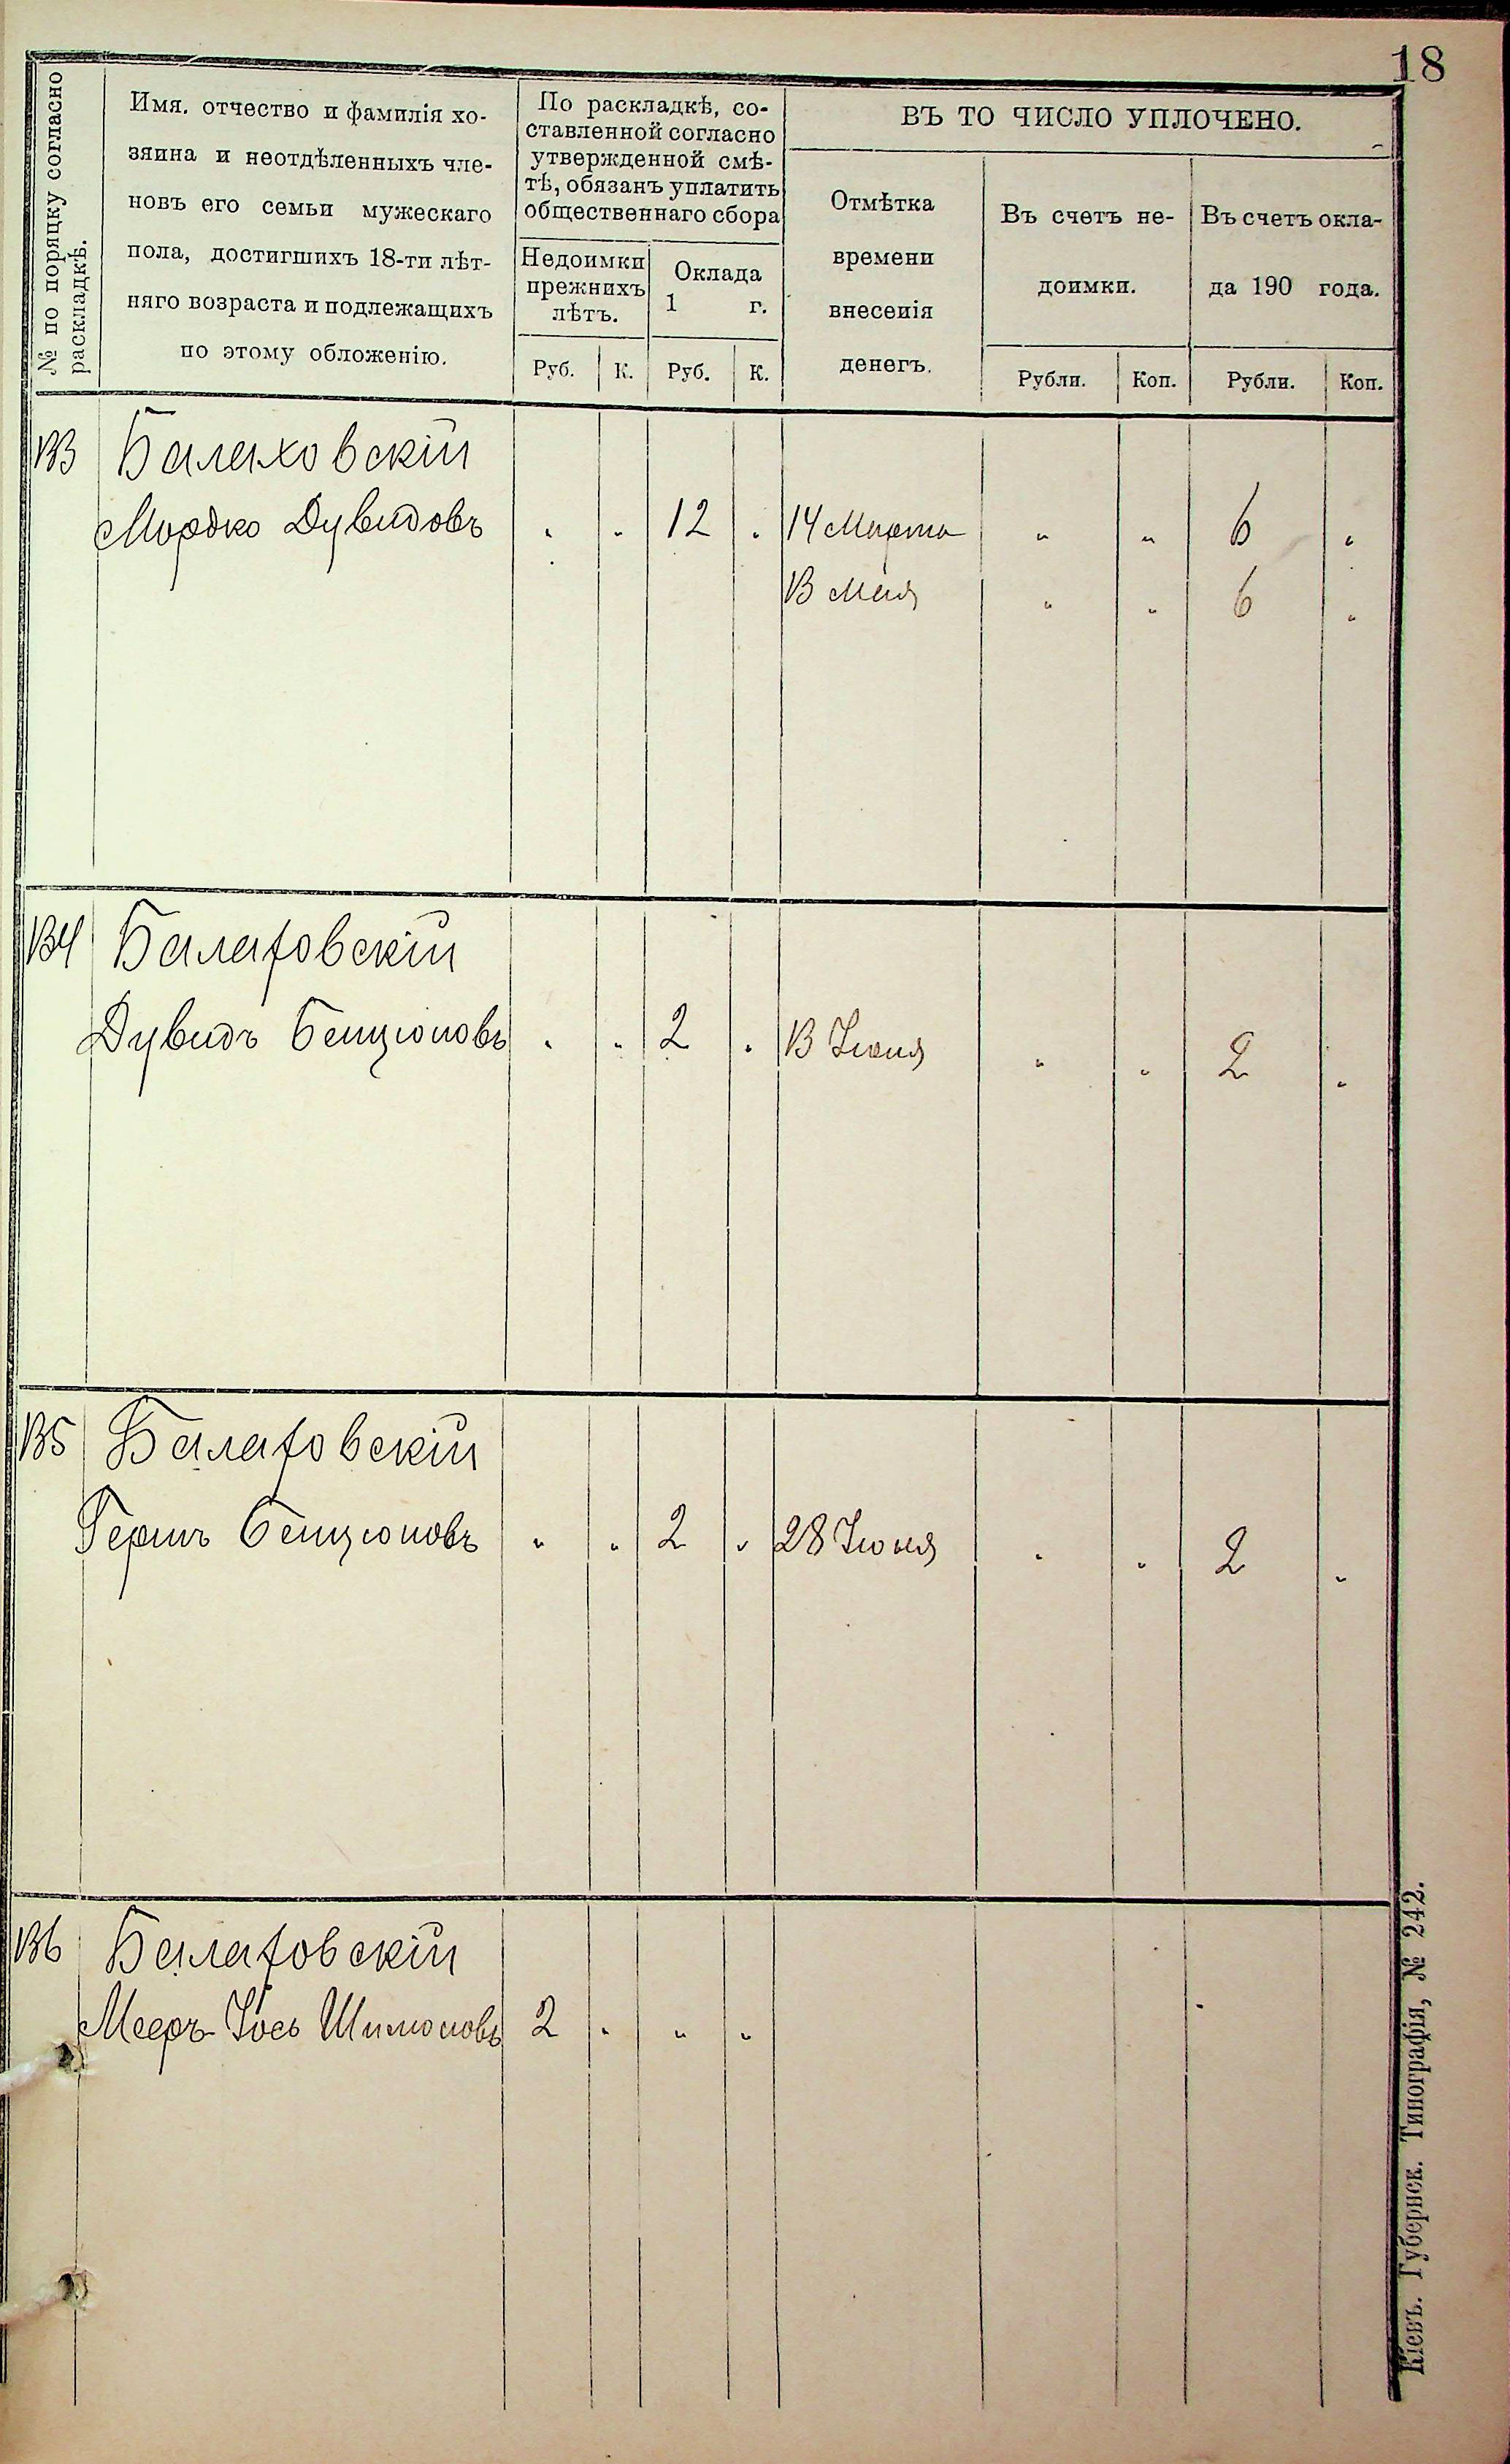 18
№ по поряцку согласно
раскладкѣ.
Имя. отчество и фамилія хо-
зяина и неотдѣленныхъ чле-
новъ его семьи мужескаго
пола, достигшихъ 18-ти лѣт-
няго возраста и подлежащихъ
по этому обложенію.
По раскладкѣ, со-
ставленной согласно
утвержденной смѣ-
тѣ, обязанъ уплатить
общественнаго сбора
Недоимки
прежнихъ
лѣтъ.
Оклада
1 г.
Руб. К. Руб. К.
ВЪ ТО ЧИСЛО УПЛОЧЕНО.
Отмѣтка
времени
внесенія
денегъ.
Въ счетъ не-
доимки.
Въ счетъ окла-
да 190 года.
Рубли. Коп. Рубли. Коп.
133 Балаховскій
Мордко Дувидовъ " " 12 " 14 Марта " " 6 "
13 Мая " " 6 "
134 Балаховскій
Дувидъ Бенционовъ " " 2 " 13 Июня " " 2 "
135 Балаховскій
Гершъ Бенционовъ " " 2 " 28 Июня " " 2 "
136 Балаховскій
Мееръ-Іось Шимоновъ 2 " " "
Кіевъ. Губернск. Типографія, № 242.